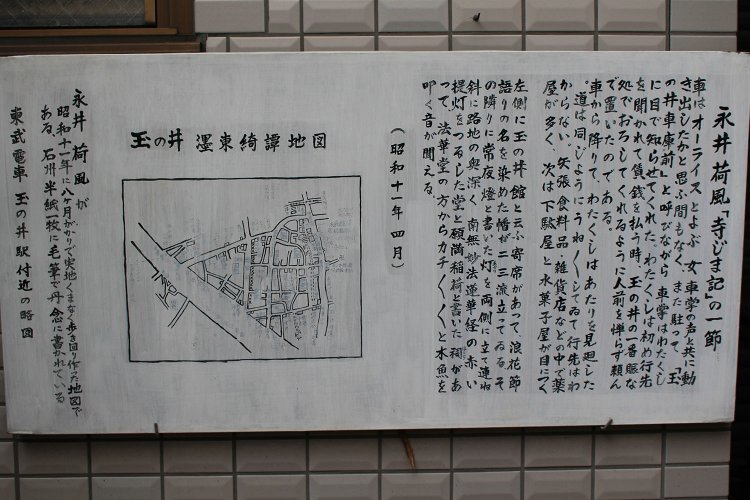 永井 荷風「寺じま記」の一節
車はオーライスとよぶ女車掌の声と共に動
き出したかと思ふ間もなく、また駐って、「玉
の井車庫前」と呼びながら車掌はわたくし
に目で知らせてくれた。わたくしは初め行先
を聞かれて賃銭を払う時、玉の井の一番賑な
処でおろしてくれるように人前を憚らず頼ん
で置いたのである。
車から降りて、わたくしはあたりを見廻した
。道は同じようにうねうねしてゐて行先はわ
からない。矢張食料品・雑貨店などの中で薬
屋が多く、次は下駄屋と水菓子屋が目につく
左側に玉の井館と云ふ寄席があって、浪花節
語りの名を染めた幡が二三流立ってゐる。そ
の隣りに常夜燈と書いた灯を両側に立て連ね
斜に路地の奥深く、南無妙法蓮華経の赤い
提灯をつるした堂と願満稲荷と書いた祠があ
って、法華堂の方からカチカチカチと木魚を
叩く音が聞える。
(昭和十一年 四月)
玉の井 墨東綺譚地図
永井 荷風が
昭和十一年に八ヶ月がかりで実地くまなく歩き回り作った地図で
ある。石州半紙一枚に毛筆で丹念に書かれている
東武電車 玉の井駅付近の略図